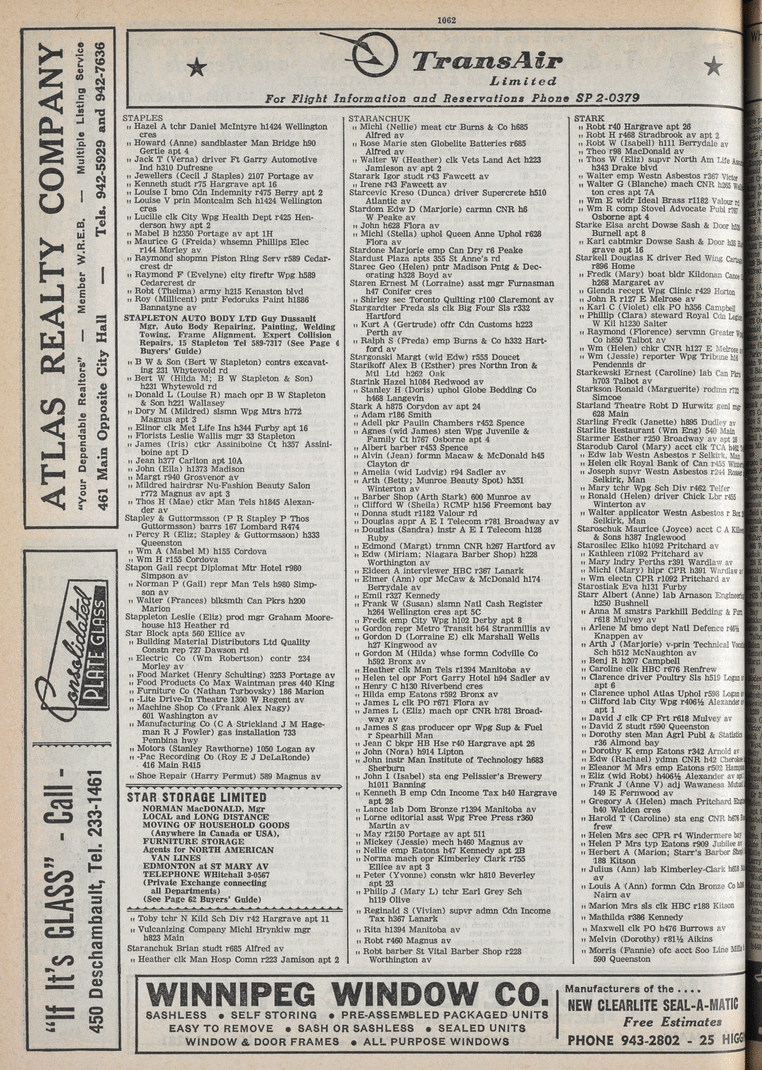 1062
TransAir
Limited
For Flight Information and Reservations Phone SP 2-0379
ATLAS REALTY COMPANY
"Your Dependable Realtors" — Member W.R.E.B. — Multiple Listing Service
461 Main Opposite City Hall — Tels. 942-5929 and 942-7636
Consolidated
PLATE GLASS
"If It's GLASS" - Call -
450 Deschambault, Tel. 233-1461
STAPLES
" Hazel A tchr Daniel McIntyre h1424 Wellington
cres
" Howard (Anne) sandblaster Man Bridge h90
Gertie apt 4
" Jack T (Verna) driver Ft Garry Automotive
Ind h310 Dufresne
" Jewellers (Cecil J Staples) 2107 Portage av
" Kenneth studt r75 Hargrave apt 16
" Louise I bmo Cdn Indemnity r475 Berry apt 2
" Louise V prin Montcalm Sch h1424 Wellington
cres
" Lucille clk City Wpg Health Dept r425 Hen-
derson hwy apt 2
" Mabel B h2350 Portage av apt 1H
" Maurice G (Freida) whsemn Phillips Elec
r144 Morley av
" Raymond shopmn Piston Ring Serv r589 Cedar-
crest dr
" Raymond F (Evelyne) city fireftr Wpg h589
Cedarcrest dr
" Robt (Thelma) army h215 Kenaston blvd
" Roy (Millicent) pntr Fedoruks Paint h1886
Bannatyne av
STAPLETON AUTO BODY LTD Guy Dussault
Mgr, Auto Body Repairing, Painting, Welding
Towing, Frame Alignment, Expert Collision
Repairs, 15 Stapleton Tel 589-7317 (See Page 4
Buyers' Guide)
" B W & Son (Bert W Stapleton) contrs excavat-
ing 231 Whytewold rd
" Bert W (Hilda M; B W Stapleton & Son)
h231 Whytewold rd
" Donald L (Louise R) mach opr B W Stapleton
& Son h221 Wallasey
" Dory M (Mildred) slsmn Wpg Mtrs h772
Magnus apt 3
" Elinor clk Met Life Ins h344 Furby apt 16
" Florists Leslie Wallis mgr 33 Stapleton
" James (Iris) ctkr Assiniboine Ct h357 Assini-
boine apt D
" Jean h377 Carlton apt 10A
" John (Ella) h1373 Madison
" Margt r940 Grosvenor av
" Mildred hairdrsr Nu-Fashion Beauty Salon
r772 Magnus av apt 3
" Thos H (Mae) ctkr Man Tels h1845 Alexan-
der av
Stapley & Guttormsson (P R Stapley P Thos
Guttormsson) barrs 167 Lombard R474
" Percy R (Eliz; Stapley & Guttormsson) h333
Queenston
" Wm A (Mabel M) h155 Cordova
" Wm H r155 Cordova
Stapon Gail recpt Diplomat Mtr Hotel r980
Simpson av
" Norman P (Gail) repr Man Tels h980 Simp-
son av
" Walter (Frances) blksmth Can Pkrs h200
Marion
Stappleton Leslie (Eliz) prod mgr Graham Moore-
house h13 Heather rd
Star Block apts 560 Ellice av
" Building Material Distributors Ltd Quality
Constn rep 727 Dawson rd
" Electric Co (Wm Robertson) contr 234
Morley av
" Food Market (Henry Schulting) 3253 Portage av
" Food Products Co Max Waintman pres 440 King
" Furniture Co (Nathan Turbovsky) 186 Marion
" -Lite Drive-In Theatre 1300 W Regent av
" Machine Shop Co (Frank Alex Nagy)
601 Washington av
" Manufacturing Co (C A Strickland J M Hage-
man R J Fowler) gas installation 733
Pembina hwy
" Motors (Stanley Rawthorne) 1050 Logan av
" -Pac Recording Co (Roy E J DeLaRonde)
416 Main R415
" Shoe Repair (Harry Permut) 589 Magnus av
STAR STORAGE LIMITED
NORMAN MacDONALD, Mgr
LOCAL and LONG DISTANCE
MOVING OF HOUSEHOLD GOODS
(Anywhere in Canada or USA),
FURNITURE STORAGE
Agents for NORTH AMERICAN
VAN LINES
EDMONTON at ST MARY AV
TELEPHONE WHitehall 3-0567
(Private Exchange connecting
all Departments)
(See Page 62 Buyers' Guide)
" Toby tchr N Kild Sch Div r42 Hargrave apt 11
" Vulcanizing Company Michl Hrynkiw mgr
h823 Main
Staranchuk Brian studt r685 Alfred av
" Heather clk Man Hosp Comn r223 Jamison apt 2
STARANCHUK
" Michl (Nellie) meat ctr Burns & Co h685
Alfred av
" Rose Marie sten Globelite Batteries r685
Alfred av
" Walter W (Heather) clk Vets Land Act h223
Jamieson av apt 2
Starark Igor studt r43 Fawcett av
" Irene r43 Fawcett av
Starcevic Kreso (Dunca) driver Supercrete h510
Atlantic av
Stardom Edw D (Marjorie) carmn CNR h6
W Peake av
" John h628 Flora av
" Michl (Stella) uphol Queen Anne Uphol r628
Flora av
Stardone Marjorie emp Can Dry r6 Peake
Stardust Plaza apts 355 St Anne's rd
Staree Geo (Helen) pntr Madison Pntg & Dec-
orating h228 Boyd av
Staren Ernest M (Lorraine) asst mgr Furnasman
h47 Conifer cres
" Shirley sec Toronto Quilting r100 Claremont av
Stargardter Freda sls clk Big Four Sls r332
Hartford
" Kurt A (Gertrude) offr Cdn Customs h223
Perth av
" Ralph S (Freda) emp Burns & Co h332 Hart-
ford av
Stargonski Margt (wid Edw) r555 Doucet
Starikoff Alex B (Esther) pres Northn Iron &
Mtl Ltd h262 Oak
Starink Hazel h1084 Redwood av
" Stanley H (Doris) uphol Globe Bedding Co
h468 Langevin
Stark A h875 Corydon av apt 24
" Adam r186 Smith
" Adell pkr Paulin Chambers r452 Spence
" Agnes (wid James) sten Wpg Juvenile &
Family Ct h767 Osborne apt 4
" Albert barber r453 Spence
" Alvin (Jean) formn Macaw & McDonald h45
Clayton dr
" Amelia (wid Ludvig) r94 Sadler av
" Arth (Betty; Munroe Beauty Spot) h351
Winterton av
" Barber Shop (Arth Stark) 600 Munroe av
" Clifford W (Sheila) RCMP h156 Freemont bay
" Donna studt r1182 Valour rd
" Douglas appr A E I Telecom r781 Broadway av
" Douglas (Sandra) instr A E I Telecom h128
Ruby
" Edmond (Margt) trnmn CNR h267 Hartford av
" Edw (Miriam; Niagara Barber Shop) h228
Worthington av
" Eldeen A interviewer HBC r367 Lanark
" Elmer (Ann) opr McCaw & McDonald h174
Berrydale av
" Emil r327 Kennedy
" Frank W (Susan) slsmn Natl Cash Register
h264 Wellington cres apt 5C
" Fredk emp City Wpg h102 Derby apt 8
" Gordon repr Metro Transit h64 Stranmillis av
" Gordon D (Lorraine E) clk Marshall Wells
h27 Kingwood av
" Gordon M (Hilda) whse formn Codville Co
h592 Bronx av
" Heather clk Man Tels r1394 Manitoba av
" Helen tel opr Fort Garry Hotel h94 Sadler av
" Henry C h130 Riverbend cres
" Hilda emp Eatons r592 Bronx av
" James L clk PO r671 Flora av
" James L (Eliz) mach opr CNR h781 Broad-
way av
" James S gas producer opr Wpg Sup & Fuel
r Spearhill Man
" Jean C bkpr HB Hse r40 Hargrave apt 26
" John (Nora) h914 Lipton
" John instr Man Institute of Technology h683
Sherburn
" John I (Isabel) sta eng Pelissier's Brewery
h1011 Banning
" Kenneth B emp Cdn Income Tax h40 Hargrave
apt 26
" Lance lab Dom Bronze r1394 Manitoba av
" Lorne editorial asst Wpg Free Press r360
Martin av
" May r2150 Portage av apt 511
" Mickey (Jessie) mech h460 Magnus av
" Nellie emp Eatons h47 Kennedy apt 2B
" Norma mach opr Kimberley Clark r755
Ellice av apt 8
" Peter (Yvonne) constn wkr h810 Beverley
apt 23
" Philip J (Mary L) tchr Earl Grey Sch
h119 Olive
" Reginald S (Vivian) supvr admn Cdn Income
Tax h367 Lanark
" Rita h1394 Manitoba av
" Robt r460 Magnus av
" Robt barber St Vital Barber Shop r228
Worthington av
STARK
" Robt r40 Hargrave apt 26
" Robt H r468 Stradbrook av apt 2
" Robt W (Isabell) h111 Berrydale av
" Theo r98 MacDonald av
" Thos W (Eliz) supvr North Am Life
h343 Drake blvd
" Walter emp Westn Asbestos r367 Victor
" Walter G (Blanche) mach CNR h265
ton cres apt 7A
" Wm E widr Ideal Brass r1182 Valour rd
" Wm R comp Stovel Advocate Publ
Osborne apt 4
Starke Elsa archt Dowse Sash & Door
Burnell apt 8
" Karl cabtmkr Dowse Sash & Door
grave apt 16
Starkell Douglas K driver Red Wing
r896 Home
" Fredk (Mary) boat bldr Kildonan Canoe
h268 Margaret av
" Glenda recept Wpg Clinic r429 Horton
" John R r127 E Melrose av
" Karl C (Violet) clk PO h356 Campbell
" Phillip (Clara) steward Royal Cdn
W Kil h1230 Salter
" Raymond (Florence) servmn Greater
Co h850 Talbot av
" Wm (Helen) chkr CNR h127 E Melrose
" Wm (Jessie) reporter Wpg Tribune
Pendennis dr
Starkewski Ernest (Caroline) lab Can Pkrs
h703 Talbot av
Starkson Ronald (Marguerite) rodmn
Simcoe
Starland Theatre Robt D Hurwitz genl mgr
628 Main
Starling Fredk (Janette) h895 Dudley av
Starlite Restaurant (Wm Eng) 540 Main
Starmer Esther r250 Broadway av apt
Starodub Carol (Mary) acct clk TCA
" Edw lab Westn Asbestos r Selkirk, Man
" Helen clk Royal Bank of Can r455
" Joseph supvr Westn Asbestos r244
Selkirk, Man
" Mary tchr Wpg Sch Div r462 Telfer
" Ronald (Helen) driver Chick Lbr r455
Winterton av
" Walter applicator Westn Asbestos r
Selkirk, Man
Staroschuk Maurice (Joyce) acct C A
& Sons h387 Inglewood
Starosilec Elko h1092 Pritchard av
" Kathleen r1092 Pritchard av
" Mary indry Perths r391 Wardlaw av
" Michl (Mary) hlpr CPR h391 Wardlaw
" Wm electn CPR r1092 Pritchard av
Starostiak Eva h131 Furby
Starr Albert (Anne) lab Arnason Engineering
h250 Bushnell
" Anna M smstrs Parkhill Bedding &
r618 Mulvey av
" Arlene M bmo dept Natl Defence
Knappen av
" Arth J (Marjorie) v-prin Technical
Sch h512 McNaughton av
" Benj R h207 Campbell
" Caroline clk HBC r676 Renfrew
" Clarence driver Poultry Sls h519 Logan
apt 6
" Clarence uphol Atlas Uphol r598 Logan
" Clifford lab City Wpg r406½ Alexander
apt 1
" David J clk CP Frt r618 Mulvey av
" David Z studt r590 Queenston
" Dorothy sten Man Agri Publ &
r36 Almond bay
" Dorothy K emp Eatons r342 Arnold av
" Edw (Rachael) ydmn CNR h42 Cherokee
" Eleanor M Mrs emp Eatons r502
" Eliz (wid Robt) h406½ Alexander av
" Frank J (Anne V) adj Wawanesa
149 E Fernwood av
" Gregory A (Helen) mach Pritchard
h40 Walden cres
" Harold T (Caroline) sta eng CNR
frew
" Helen Mrs sec CPR r4 Windermere bay
" Helen P Mrs typ Eatons r909 Jubilee
" Herbert A (Marion; Starr's Barber
188 Kitson
" Julius (Ann) lab Kimberley-Clark
av
" Louis A (Ann) formn Cdn Bronze Co
Nairn av
" Marion Mrs sls clk HBC r188 Kitson
" Mathilda r386 Kennedy
" Maxwell clk PO h476 Burrows av
" Melvin (Dorothy) r81½ Aikins
" Morris (Fannie) ofc acct Soo Line
590 Queenston
WINNIPEG WINDOW CO.
SASHLESS • SELF STORING • PRE-ASSEMBLED PACKAGED UNITS
EASY TO REMOVE • SASH OR SASHLESS • SEALED UNITS
WINDOW & DOOR FRAMES • ALL PURPOSE WINDOWS
Manufacturers of the ....
NEW CLEARLITE SEAL-A-MATIC
Free Estimates
PHONE 943-2802 - 25